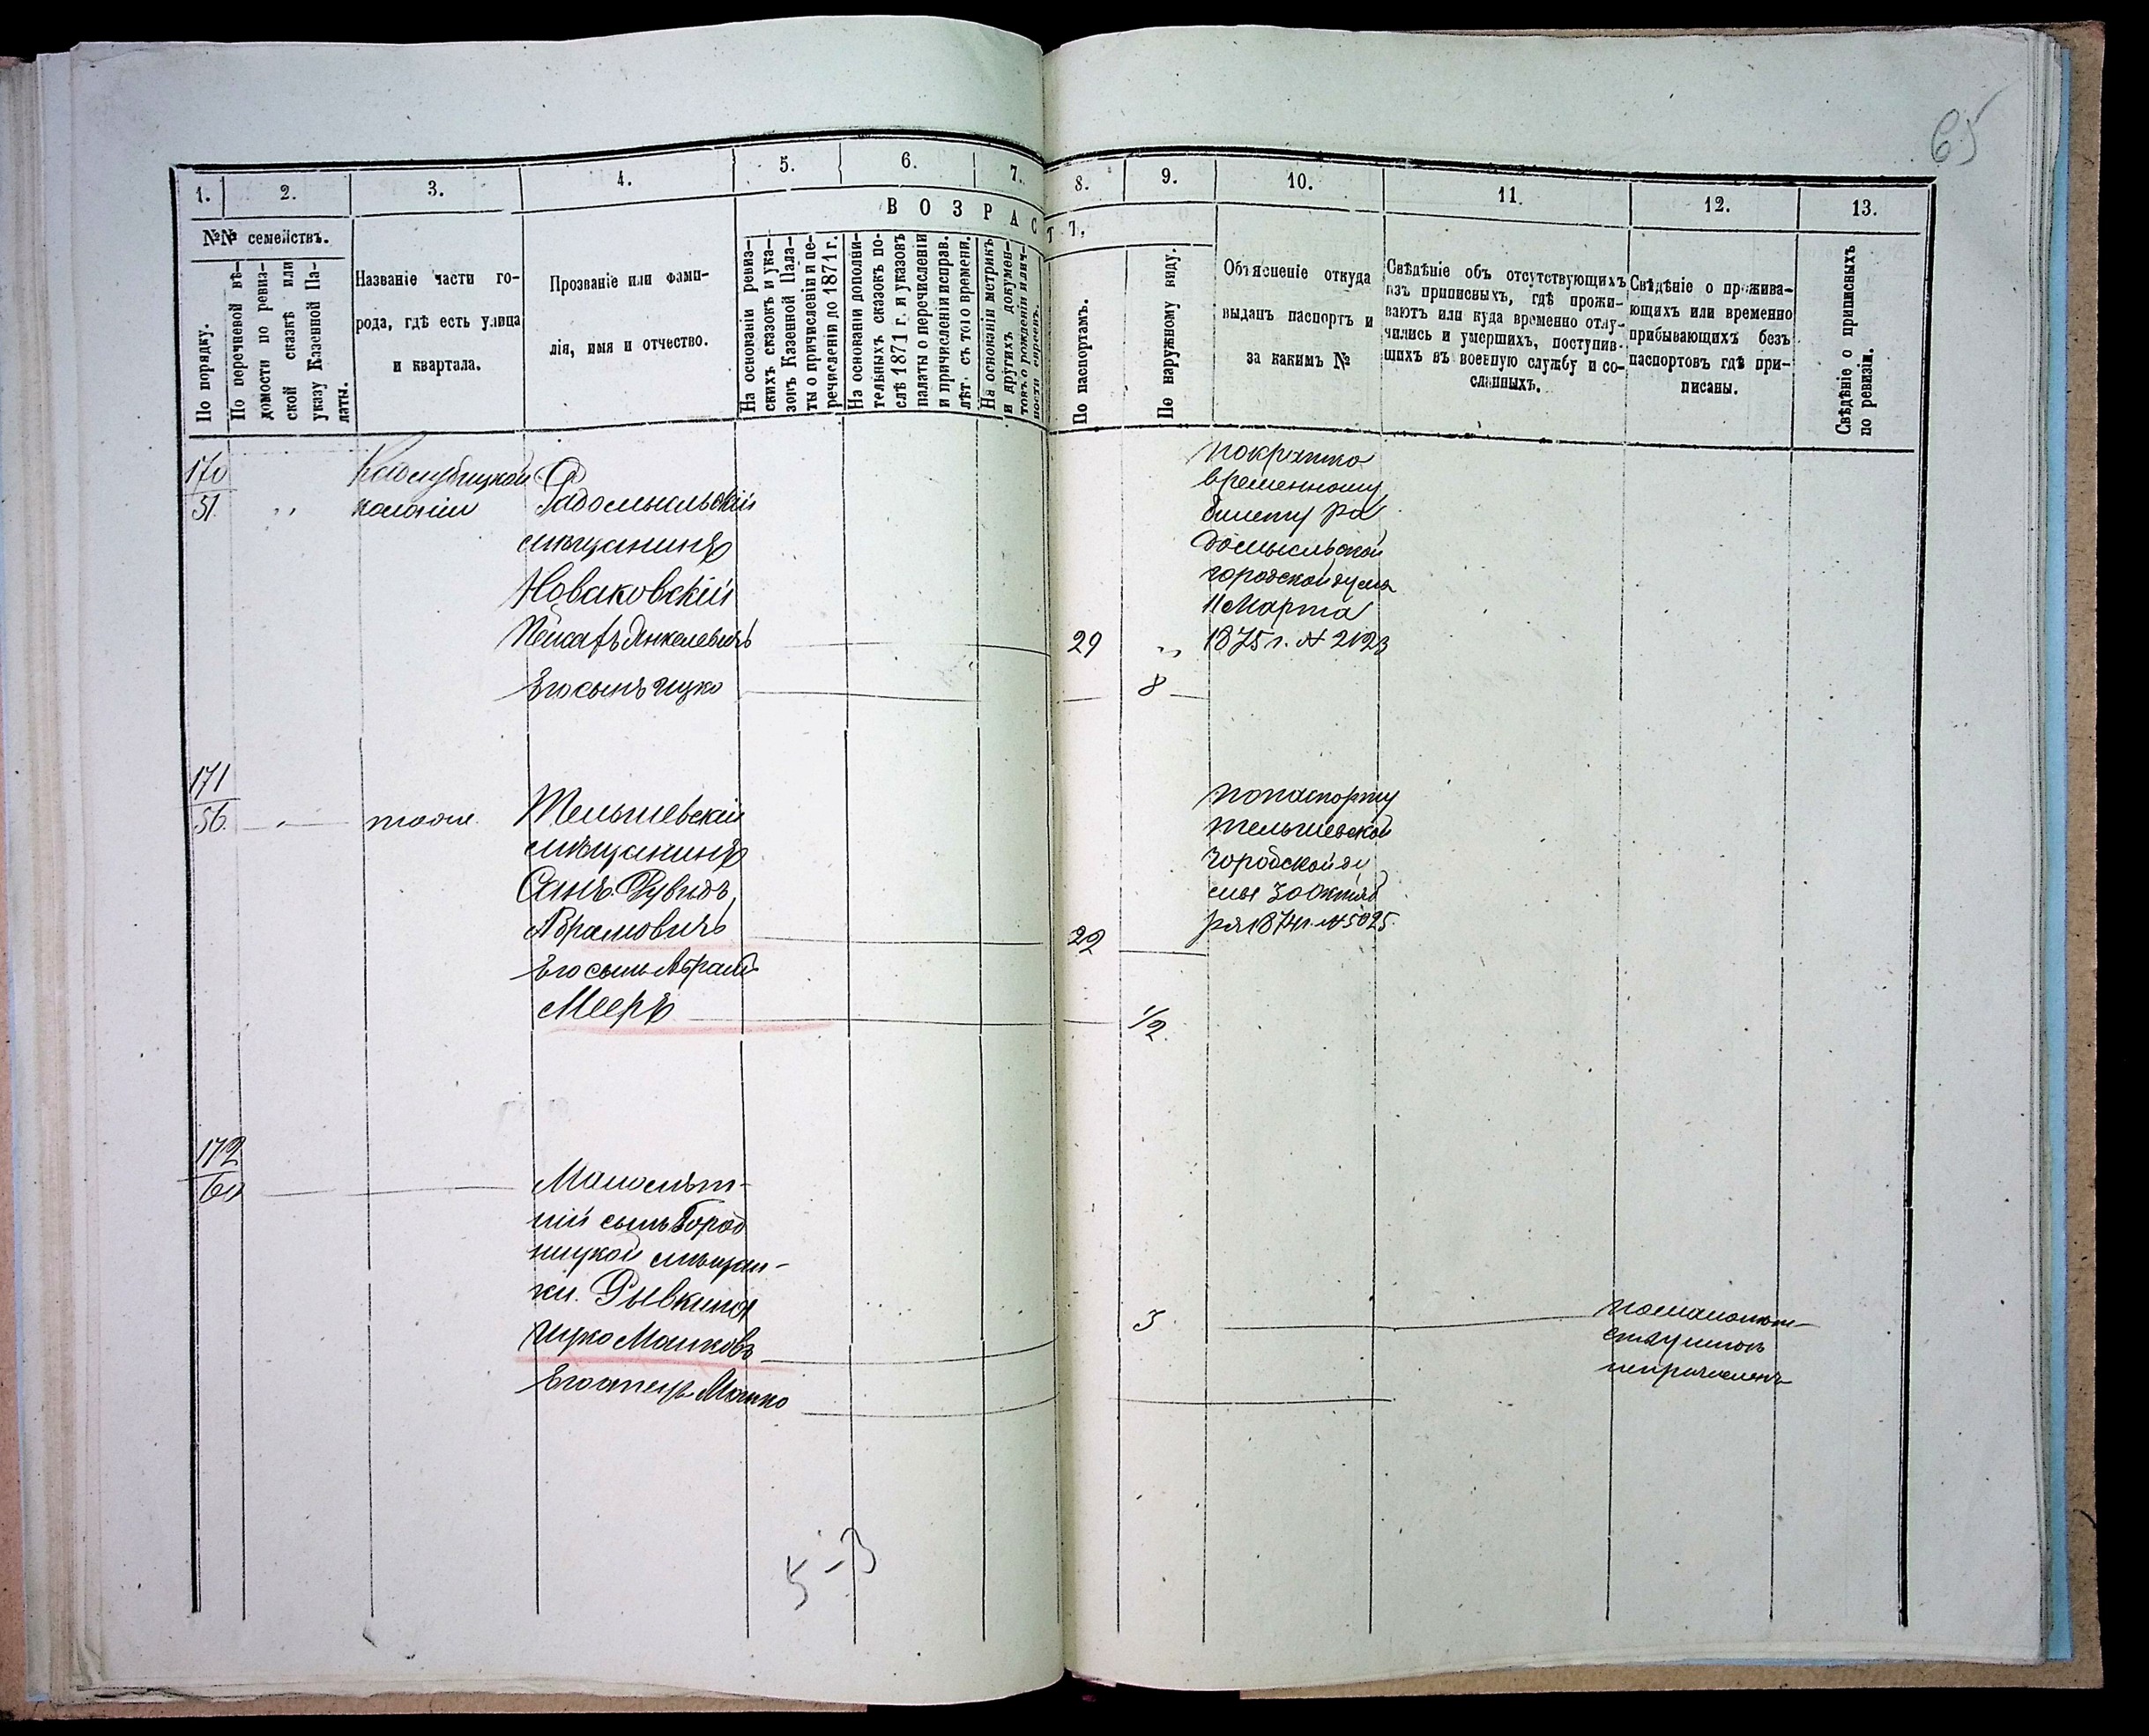 65
1.
2.
3.
4.
5.
6.
7.
8.
9.
10.
11.
12.
13.
№№ семействъ.
ВОЗРАСТЪ,
По порядку.
По перечневой вѣ-
домости по ревиз-
ской сказкѣ или
указу Казенной Па-
латы.
Названіе части го-
рода, гдѣ есть улица
и квартала.
Прозваніе или фами-
лія, имя и отчество.
На основаніи ревиз-
скихъ сказокъ и ука-
зовъ Казенной Пала-
ты о причисленіи и пе-
речисленіи до 1871 г.
На основаніи дополни-
тельныхъ сказокъ по-
слѣ 1871 г. и указовъ
палаты о перечисленіи
и причисленіи исправ.
лѣт. съ того времени.
На основаніи метрикъ
и другихъ докумен-
товъ о рожденіи и лич-
ности евреевъ.
По паспортамъ.
По наружному виду.
Объясненіе откуда
выданъ паспортъ и
за какимъ №
Свѣдѣніе объ отсутствующихъ
изъ приписныхъ, гдѣ прожи-
ваютъ или куда временно отлу-
чились и умершихъ, поступив-
щихъ въ военную службу и со-
сланныхъ.
Свѣдѣніе о прожива-
ющихъ или временно
прибывающихъ безъ
паспортовъ гдѣ при-
писаны.
Свѣдѣніе о приписныхъ
по ревизіи.
170
51.
колоніи
Радомысльскій
мѣщанинъ
Новаковскій
Янкелевичъ
29
Его сынъ Ицко
8
По кратко
временному
билету Ра
домысльской
городской думы
11 Марта
1875 г. № 2123
171
56.
тоже
Тельшевскій
мѣщанинъ
Абрамовичъ
22
Его сынъ Абрамъ
Мееръ
1/2
По паспорту
Тельшевской
городской ду
мы 30 Октяб
ря 1874 г. № 5025.
172
60
Малолѣт-
ній сынъ Город
ницкой мѣщан-
ки Рывкиной
Ицко Мошковъ
3
Его отецъ Мошко
по малолѣт-
ству
непричисленъ
5-3